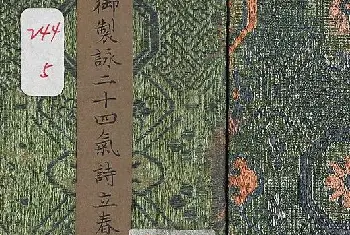 244
5
御製詠二十四氣詩立春